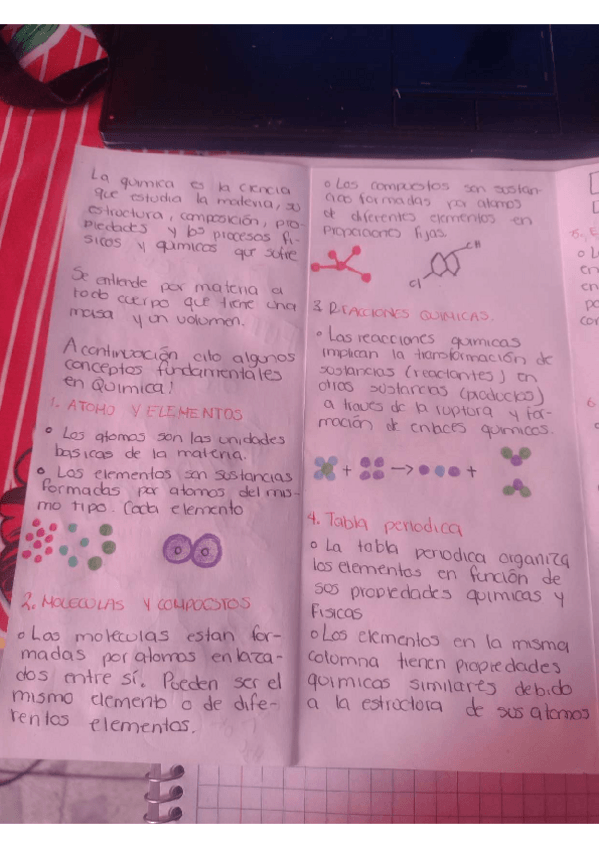 La quimica es la ciencia
que estudia la materia, su
estructura, composición, pro-
piedades y los procesos fi-
sicos y quimicos que sufre
Se entiende por materia a
todo cuerpo que tiene una
masa y un volumen.
A continuación cito algunos
conceptos fundamentales
en Quimica!
1. ATOMO Y ELEMENTOS
• Los atomos son las unidades
basicas de la materia.
• Los elementos son sustancias
formadas por atomos del mis-
mo tipo. Cada elemento
2. MOLECULAS Y COMPUESTOS
• Las moleculas estan for-
madas por atomos enlaza-
dos entre sí. Pueden ser el
mismo elemento o de dife-
rentos elementos.
• Los compuestos son sustan-
cias formadas por atomos
de diferentes elementos en
proporciones fijas.
Cl
3. REACCIONES QUIMICAS.
• Las reacciones quimicas
implican la transformación de
sustancias (reactantes) en
otras sustancias (productos)
a traves de la ruptura y for-
mación de enlaces quimicos.
+ → +
4. Tabla periodica
• La tabla periodica organiza
los elementos en función de
sus propiedades quimicas y
Fisicas
• Los elementos en la misma
columna tienen propiedades
quimicas similares debido
a la estructura de sus atomos
5. E
• L
en
en
po
con
6